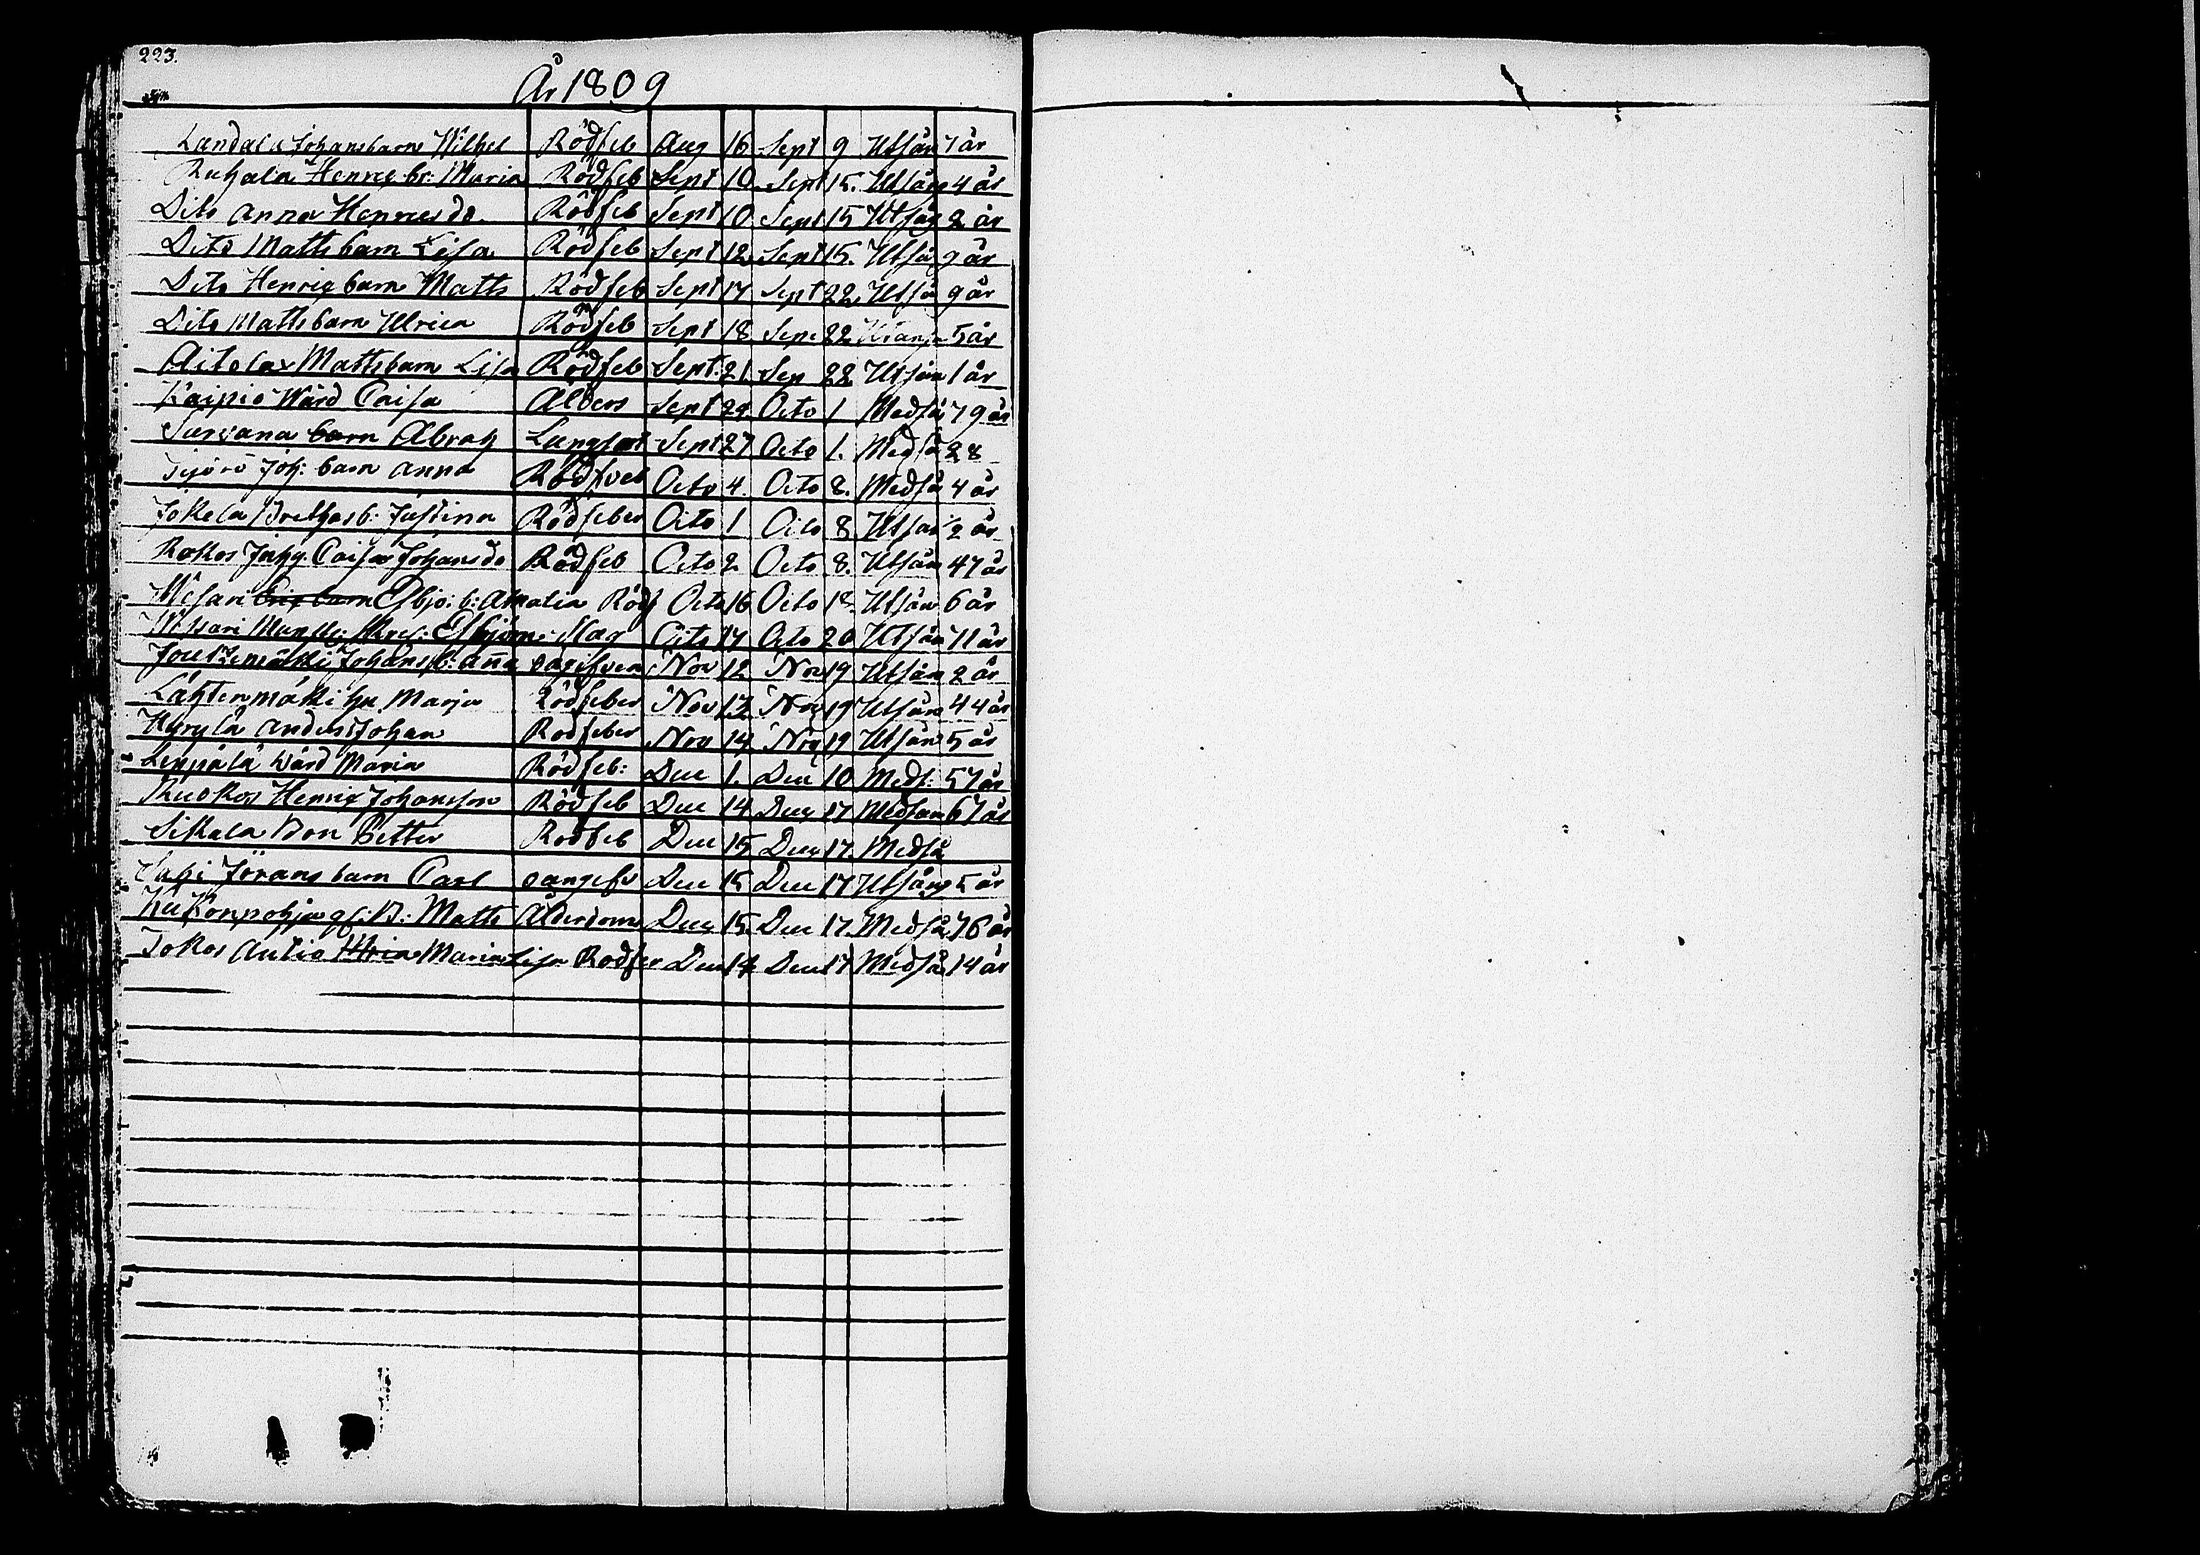 223.
År 1809
Landala Johansbarn Wilhel Rödfeb Aug 16 Sept 9 Utsån 7 år
Ruhala Henric br: Maria Rödfeb Sept 10 Sept 15. Utsån 4 år
Dito Anna Henricsdo Rödfeb Sept 10 Sept 15 Utsån 2 år
Dito Matts barn Lisa Rödfeb Sept 12 Sept 15. Utså 9 år
Dito Henric barn Matts Rödfeb Sept 17 Sept 22 Utså 9 år
Dito Matts barn Ulrica Rödfeb Sept 18 Sept 22 5 år
Mattsbarn Lisa Rödfeb Sept. 21 Sep 22 Utsån 1 år
Kaipio Wärd Caisa Ålders Sept 29 Octo 1 Medså 79 år
barn Abrah Lungsot Sept 27 Octo 1. Medså 28
Joh: barn Anna Rödfveb Octo 4. Octo 8. Medså 4 år
Jokela b: Justina Rödfeber Octo 1 Octo 8 Utsån 1/2 år
Kokos Caisa Johansdo Rödfeb Octo 2 Octo 8. Utsån 47 år
Eric barn Esbjo: b: Amalia Rödf Octo 16 Octo 18. Utsån 6 år
Esbjörn Slag Octo 17 Octo 20 Utsån 71 år
Johans b: Anna Nov 12 Nov 19 Utsån 2 år
Lähtenmäki hu Marja Rödfeber Nov 13 Nov 19 Utsån 44 år
Kyrylä Anders Johan Rodfeber Nov 14 Nov 19 Utsån 5 år
Leppälä Wärd Maria Rödfeb: Dec 1. Dec 10 Meds: 57 år
Ruokos Henric Johansson Rödfeb Dec 14 Dec 17 Medsån 67 år
Sikala Bon Petter Rodfeb Dec 15 Dec 17. Medså
Jörans barn Carl Dec 15 Dec 17 Utsång 5 år
Matts Ålderdom Dec 15. Dec 17. Medså 76 år
Jokos Autio Maria Lisa Rodfer Dec 14 Dec 17 Medså 14 år